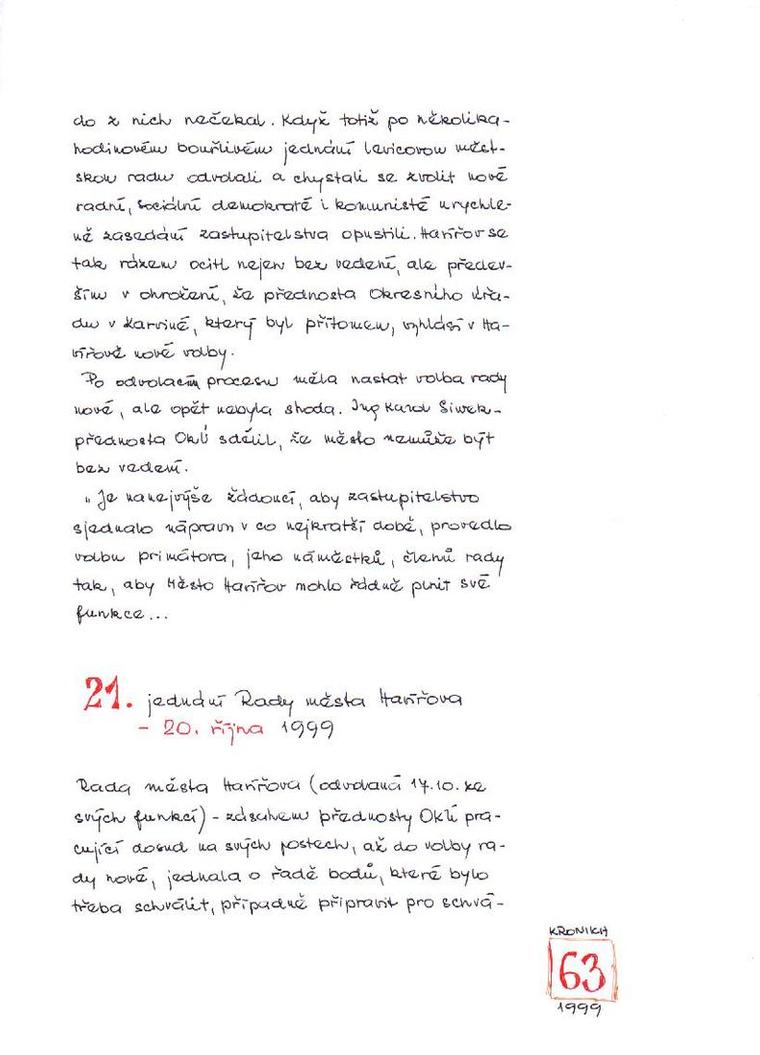 do z nich nečekal. Když totiž po několika-
hodinovém bouřlivém jednání levicovou měst-
skou radu odvolali a chystali se zvolit nové
radní, sociální demokraté i komunisté urychle-
ně zasedání zastupitelstva opustili. Havířov se
tak rázem ocitl nejen bez vedení, ale předev-
ším v ohrožení, že přednosta Okresního úřa-
du v Karviné, který byl přítomen, vyhlásí v Ha-
vířově nové volby.
Po odvolacím procesu měla nastat volba rady
nové, ale opět nebyla shoda. Ing Karol Siwek-
přednosta OkÚ sdělil, že město nemůže být
bez vedení.
"Je nanejvýše žádoucí, aby zastupitelstvo
sjednalo nápravu v co nejkratší době, provedlo
volbu primátora, jeho náměstků, členů rady
tak, aby Město Havířov mohlo řádně plnit své
funkce...
21. jednání Rady města Havířova
- 20. října 1999
Rada města Havířova (odvolaná 17.10. ze
svých funkcí) - zásahem přednosty OkÚ pra-
cující dosud na svých postech, až do volby ra-
dy nové, jednala o řadě bodů, které bylo
třeba schválit, případně připravit pro schvá-
KRONIKA
63
1999